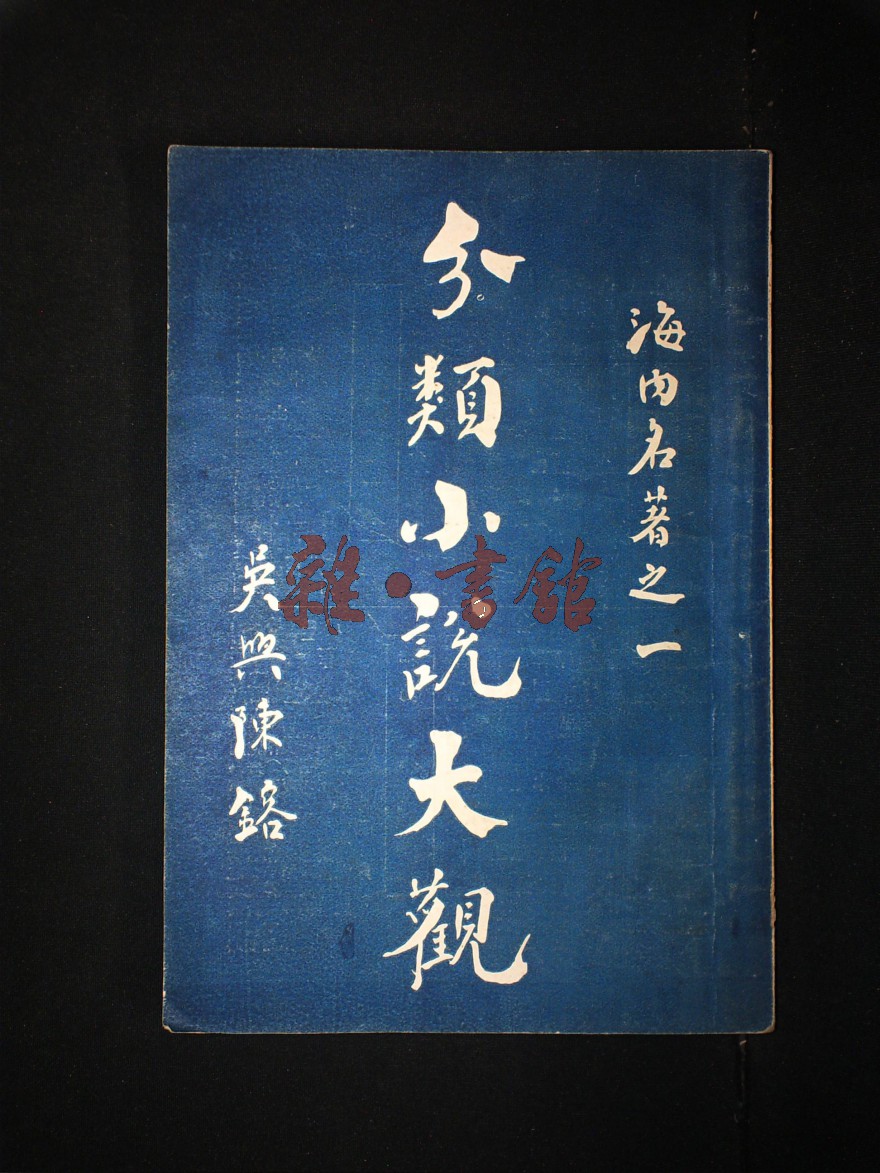 海内名著之一
分類小説大觀
吳興陳鎔
雜·書館